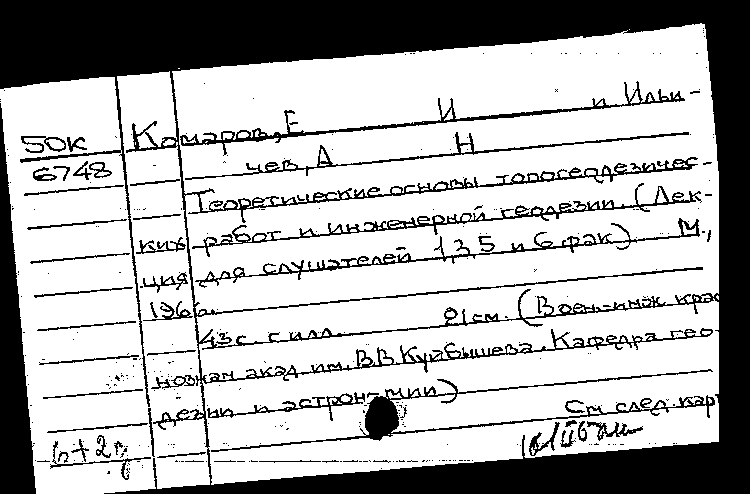 50к Комаров, Е И и Ильи-
6748 чев, А Н
Теоретические основы топогеодезичес-
ких работ и инженерной геодезии. (Лек-
ция для слушателей 1,3,5 и 6 фак). М.,
196
43 с. с илл. 21 см. (Воен.-инж крас
нознам акад им. В В Куйбышева. Кафедра гео-
дезии и астрономии)
См след. кар
6+2